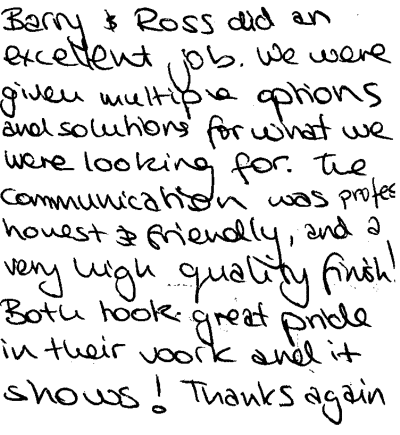 Barry & Ross did an
excellent job. We were
given multiple options
and solutions for what we
were looking for. The
communication was profes
honest & friendly, and a
very high quality finish!
Both took great pride
in their work and it
shows! Thanks again